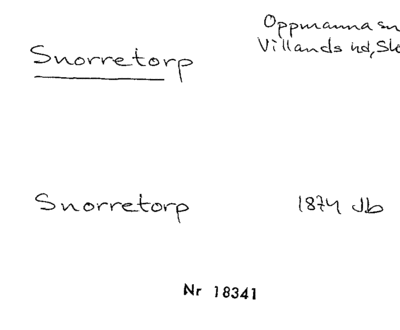 Oppmanna sn
Villands hd, Sk
Snorretorp
Snorretorp 1874 Jb
Nr 18341